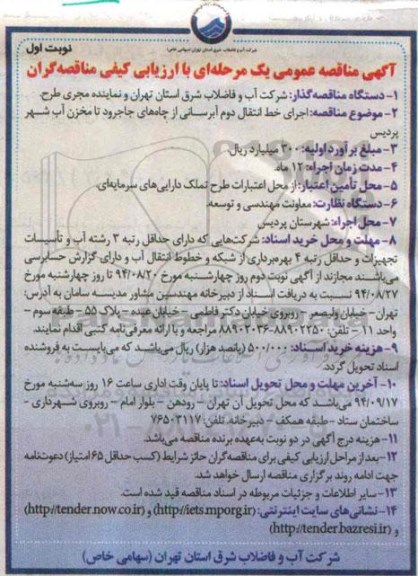 نوبت اول
شرکت آب و فاضلاب شرق استان تهران (سهامی خاص)
آگهی مناقصه عمومی یک مرحله‌ای با ارزیابی کیفی مناقصه‌گران
۱- دستگاه مناقصه‌گذار: شرکت آب و فاضلاب شرق استان تهران و نماینده مجری طرح.
۲- موضوع مناقصه: اجرای خط انتقال دوم آبرسانی از چاه‌های جاجرود تا مخزن آب شهر
پردیس
۳- مبلغ برآورد اولیه: ۳۰۰ میلیارد ریال.
۴- مدت زمان اجراء: ۱۲ ماه.
۵- محل تأمین اعتبار: از محل اعتبارات طرح تملک دارایی‌های سرمایه‌ای.
۶- دستگاه نظارت: معاونت مهندسی و توسعه.
۷- محل اجراء: شهرستان پردیس
۸- مهلت و محل خرید اسناد: شرکت‌هایی که دارای حداقل رتبه ۳ رشته آب و تأسیسات
تجهیزات و حداقل رتبه ۴ بهره‌برداری از شبکه و خطوط انتقال آب و دارای گزارش حسابرسی
می‌باشند مجازند از آگهی نوبت دوم روز چهارشنبه مورخ ۹۴/۰۸/۲۰ تا روز چهارشنبه مورخ
۹۴/۰۸/۲۷ نسبت به دریافت اسناد از دبیرخانه مهندسین مشاور مدیسه سامان به آدرس:
تهران - خیابان ولیعصر - روبروی خیابان دکتر فاطمی - خیابان عبده - پلاک ۵۵ - طبقه سوم -
واحد ۱۱ - تلفن: ۸۸۹۰۲۲۵۰-۸۸۹۰۲۰۳۶ مراجعه و با ارائه معرفی‌نامه کتبی اقدام نمایند.
۹- هزینه خرید اسناد: ۵۰۰/۰۰۰ (پانصد هزار) ریال می‌باشد که می‌بایست به فروشنده
اسناد تحویل گردد.
۱۰- آخرین مهلت و محل تحویل اسناد: تا پایان وقت اداری ساعت ۱۶ روز سه‌شنبه مورخ
۹۴/۰۹/۱۷ می‌باشد که محل تحویل آن تهران - رودهن - بلوار امام - روبروی شهرداری -
ساختمان ستاد - طبقه همکف - دبیرخانه تلفن: ۷۶۵۰۳۱۱۷
۱۱- هزینه درج آگهی در دو نوبت به‌عهده برنده مناقصه می‌باشد.
۱۲- بعد از مراحل ارزیابی کیفی برای مناقصه‌گران حائز شرایط (کسب حداقل ۶۵ امتیاز) دعوتنامه
جهت ادامه روند برگزاری مناقصه ارسال خواهد شد.
۱۳- سایر اطلاعات و جزئیات مربوطه در اسناد مناقصه قید شده است.
۱۴- نشانی‌های سایت اینترنتی: (http://iets.mporg.ir) و (http://tender.now.co.ir)
و (http://tender.bazresi.ir)
شرکت آب و فاضلاب شرق استان تهران (سهامی خاص)